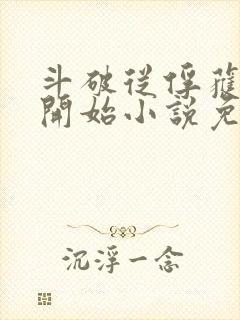 斗破從俘獲
開始小說免
沉浮一念